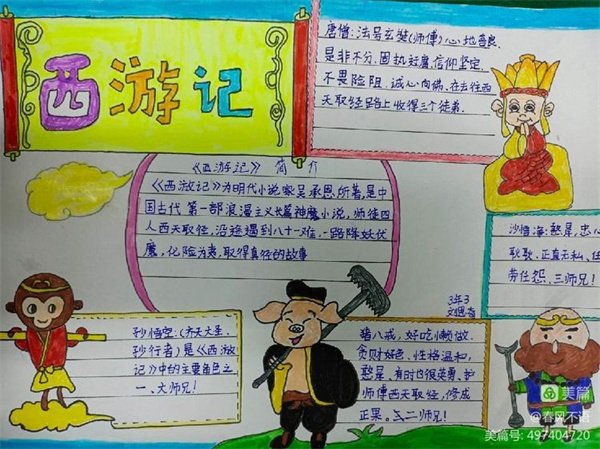 西游记
唐僧:法号玄奘(师傅)心地善良.
是非不分、固执迂腐,信仰坚定
不畏险阻、诚心向佛.在去往西
天取经路上收得三个徒弟.
《西游记》 简 介
《西游记》为明代小说家吴承恩.所著,是中
国古代第一部浪漫主义长篇神魔小说,师徒四
人西天取经,沿途遇到八十一难,一路降妖伏
魔,化险为夷,取得真经的故事
沙悟净:憨厚,忠心
耿耿、正直无私、任
劳任怨、三师兄!
3年3
孙悟空:(齐天大圣、
孙行者)是《西游
记》中的主要角色之
一、大师兄!
猪八戒,好吃懒做.
贪财好色、性格温和、
憨厚、有时也很英勇、护
师傅西天取经,修成
正果。二师兄!
美篇
@春风不语
美篇号: 497404720